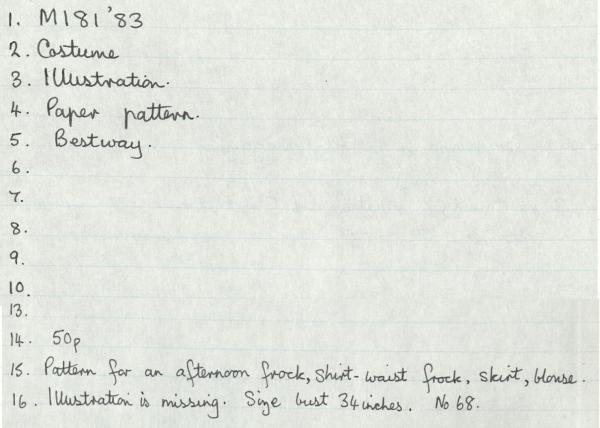 1. M181 '83
2. Costume
3. Illustration.
4. Paper pattern.
5. Bestway.
6.
7.
8.
9.
10.
13.
14. 50p
15. Pattern for an afternoon frock, shirt-waist frock, skirt, blouse.
16. Illustration is missing. Size bust 34 inches. No 68.